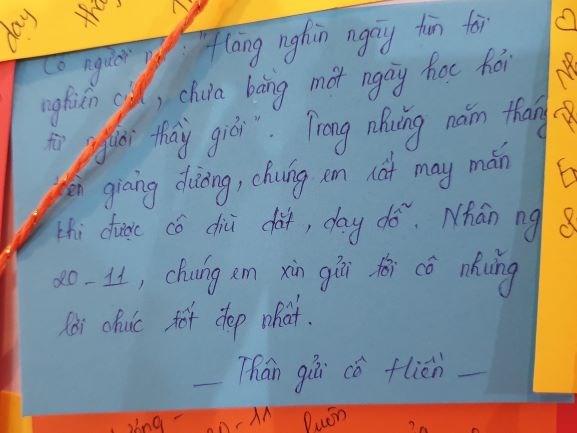 dạy
Có người nói: "Hàng nghìn ngày tìm tòi
nghiên cứu, chưa bằng một ngày học hỏi
từ người thầy giỏi". Trong những năm tháng
trên giảng đường, chúng em rất may mắn
khi được cô dìu dắt, dạy dỗ. Nhân ng
20-11, chúng em xin gửi tới cô những
lời chúc tốt đẹp nhất.
— Thân gửi cô Hiền —
20-11 luôn